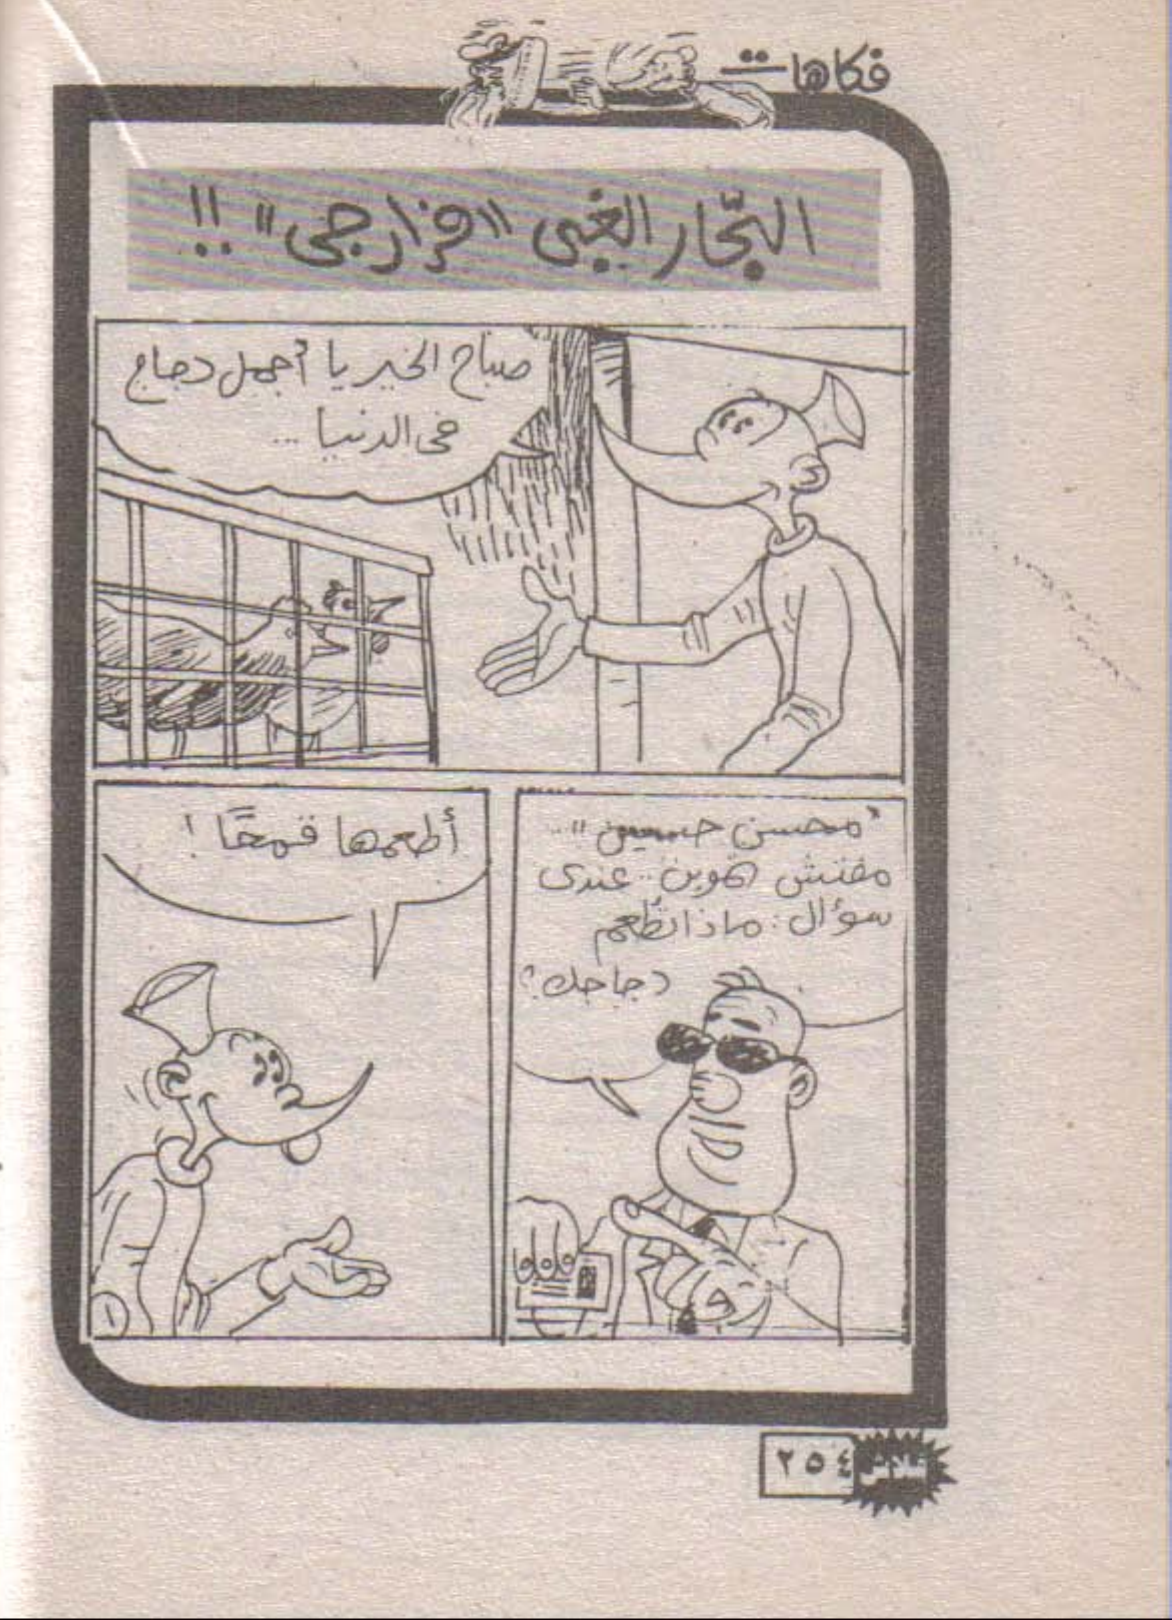 فكاهات
البحّار الغبى "فرارجى"!!
صباح الخير يا أجمل دجاج
فى الدنيا ...
"محسن حسين"..
مفتش تموين.. عندى
سؤال: ماذا تُطعم
دجاجك؟
أطعمها قمحًا!
٢٥٤